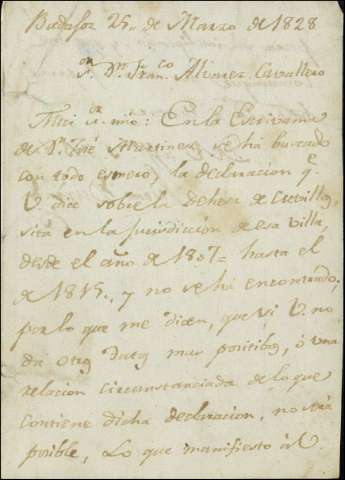 Badajoz 25,, de Marzo de 1828
Sor. Dn. Franco. Alvarez Cavallero
Mui Sor. mio: En la Escrivania
de Dn. José Martinez se há buscado
con todo esmero, la declaracion qe.
V. dice sobre la dehesa de Cuvillos,
sita en la jurisdiccion de esa Villa,
desde el año de 1807= hasta el
de 1815,, y no se há encontrado;
por lo que me dicen, que si V. no
da otros datos mas positibos, ó una
relacion circunstanciada de lo que
contiene dicha declaracion, no será
posible, Lo que manifiesto á V.